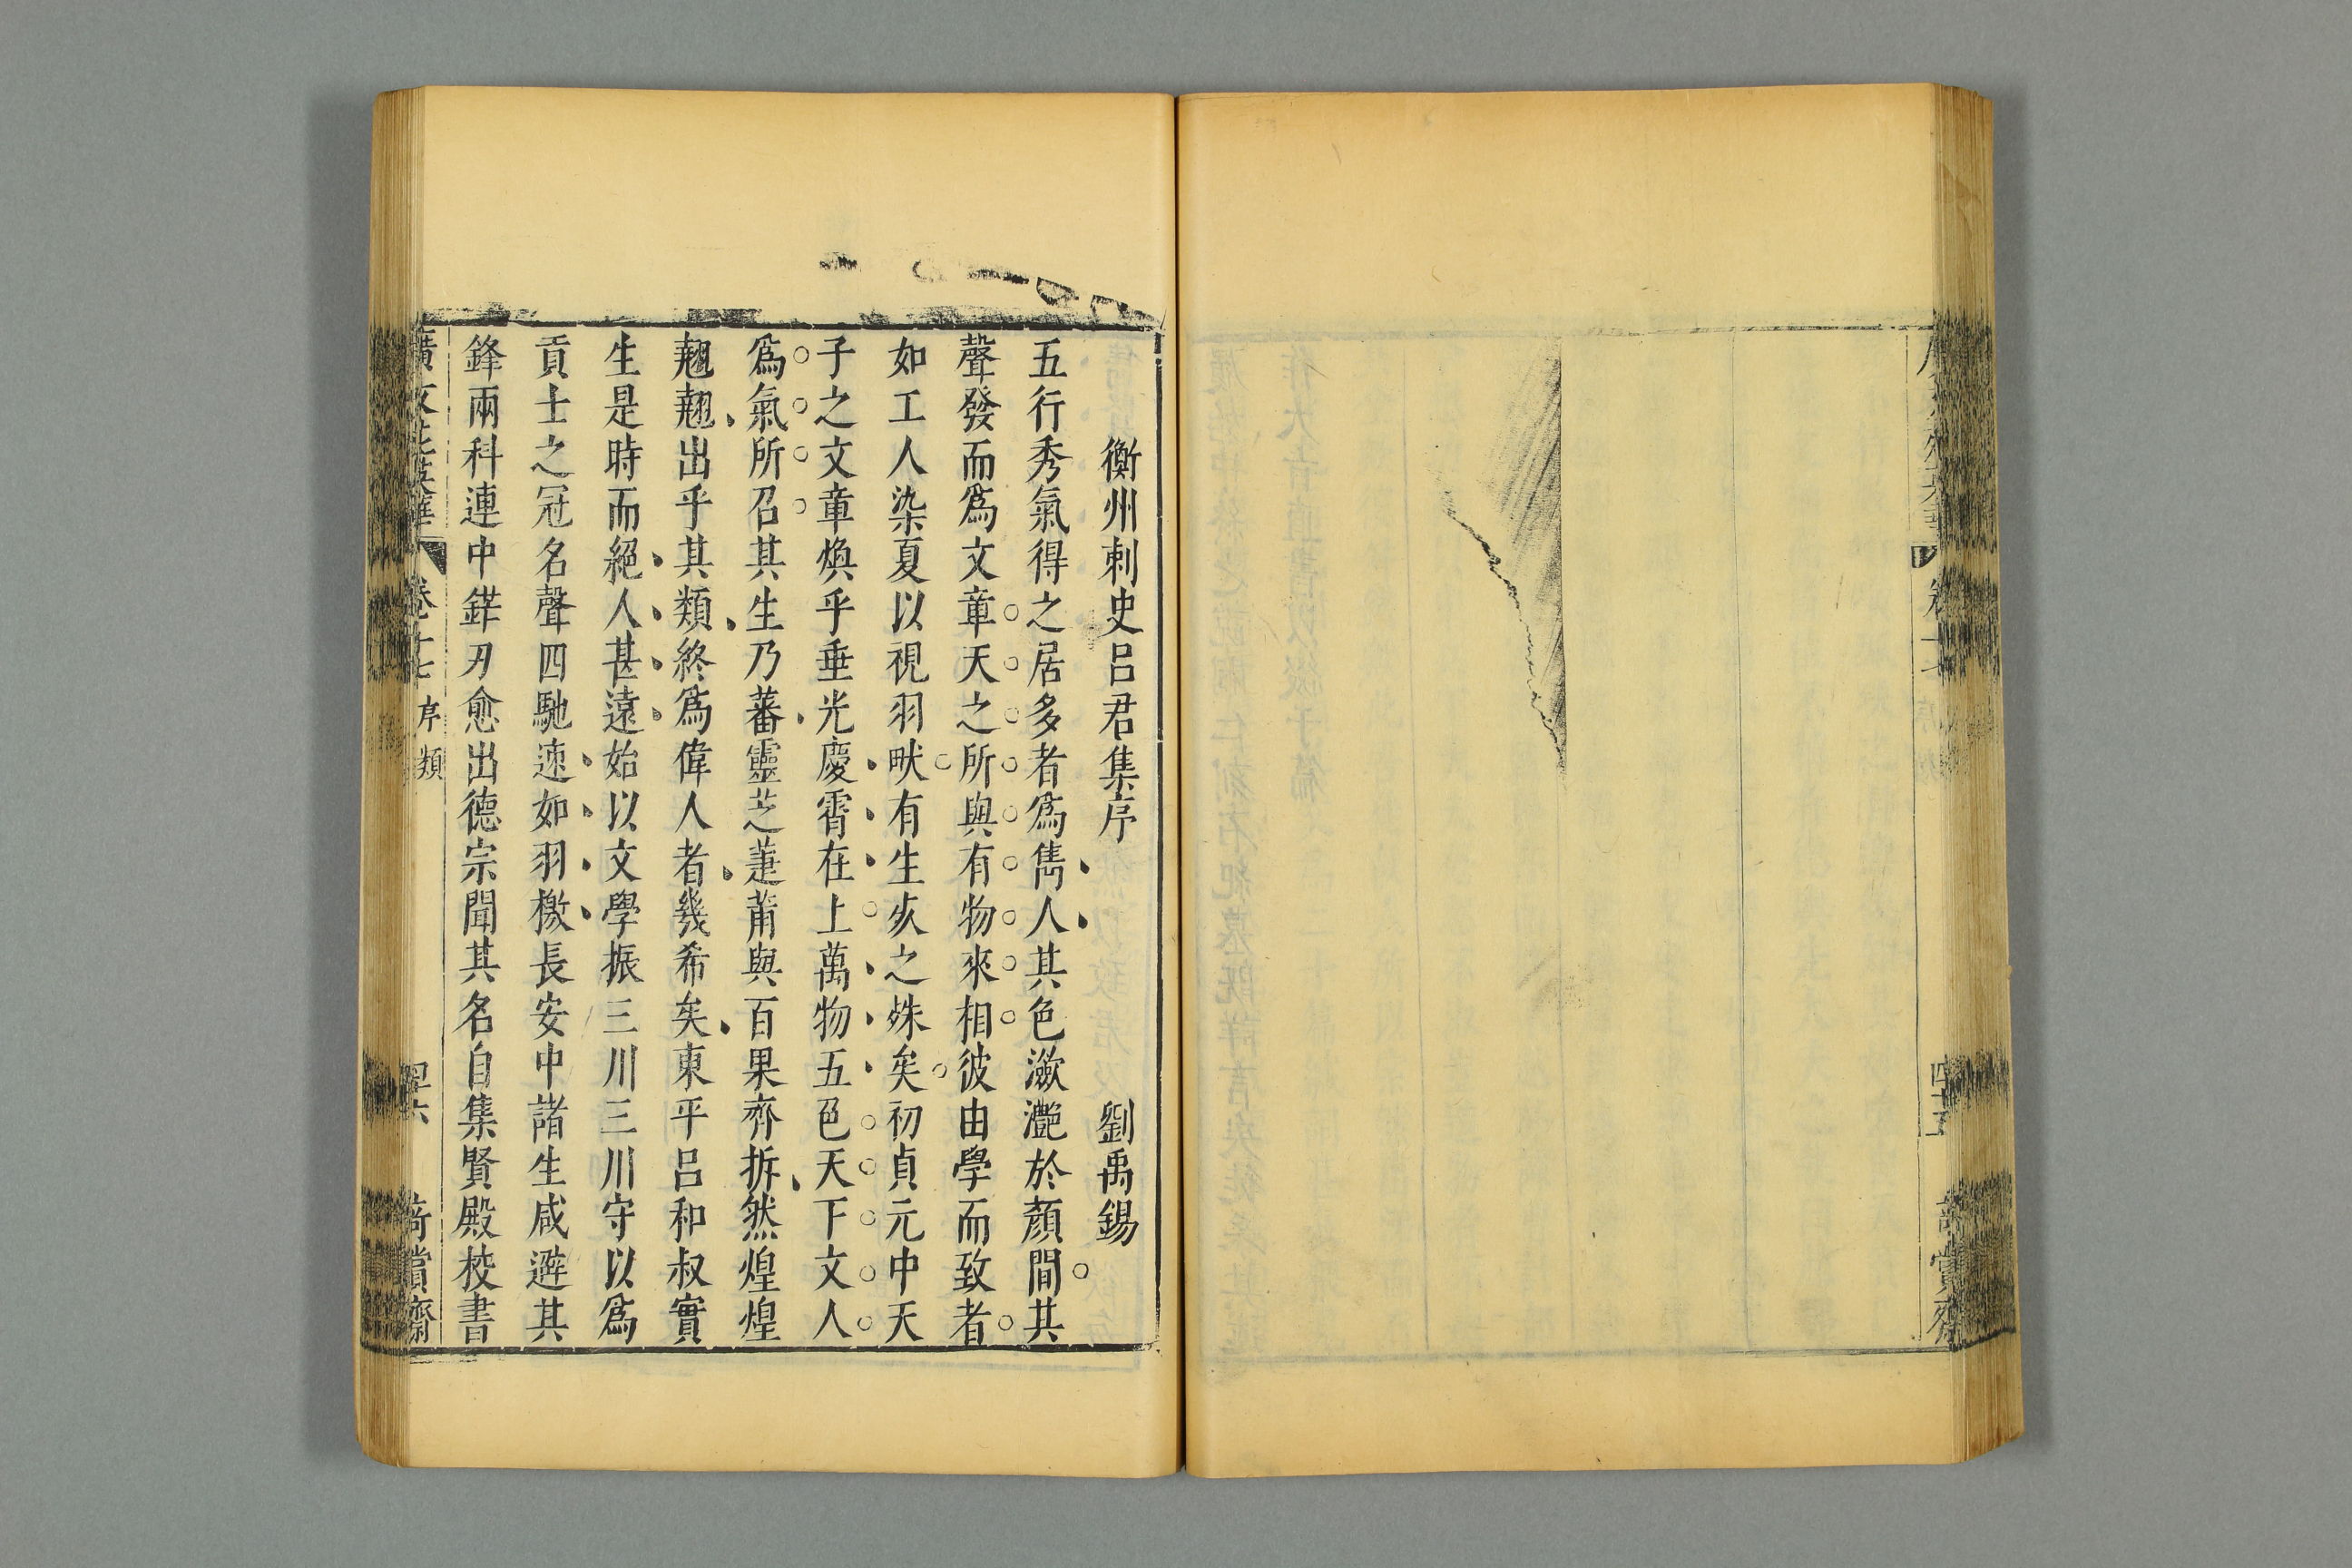 衡州刺史呂君集序 劉禹錫
五行秀氣得之居多者爲雋人其色瀲灧於顏間其
聲發而爲文章天之所與有物來相彼由學而致者
如工人染夏以視羽畎有生死之殊矣初貞元中天
子之文章煥乎垂光慶霄在上萬物五色天下文人
爲氣所召其生乃蕃靈芝萐莆與百果齊拆然煌煌
翹翹出乎其類終爲偉人者幾希矣東平呂和叔實
生是時而絕人甚遠始以文學振三川三川守以爲
貢士之冠名聲四馳速如羽檄長安中諸生咸避其
鋒兩科連中鋩刃愈出德宗聞其名自集賢殿校書
廣文苑英華 卷十七 序類 四六 奇賞齋
卷十七 四十五 奇賞齋